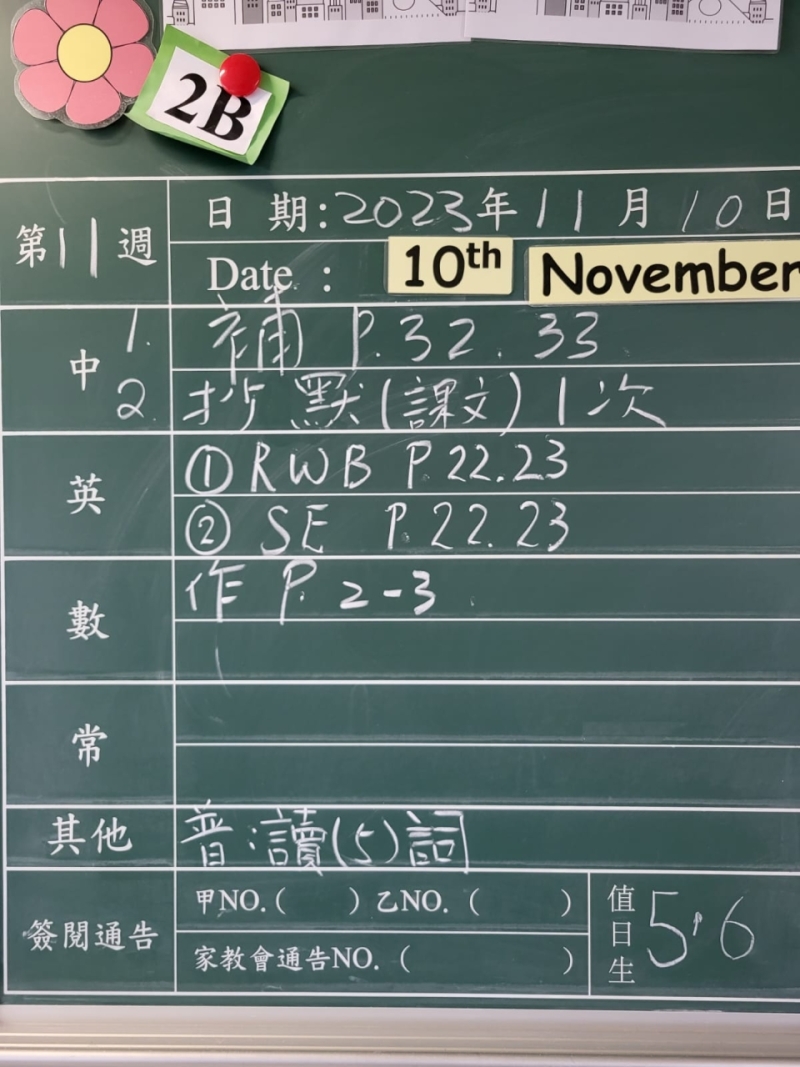 2B
第11週
日 期:2023年11月10日
Date : 10th November
中
1. 補 P.32.33
2. 抄 默(課文)1次
英
① RWB P.22.23
② SE P.22.23
數
作 P. 2-3
常
其他
普:讀(5)詞
簽閱通告
甲NO.( )乙NO.( )
家教會通告NO.( )
值日生
5,6